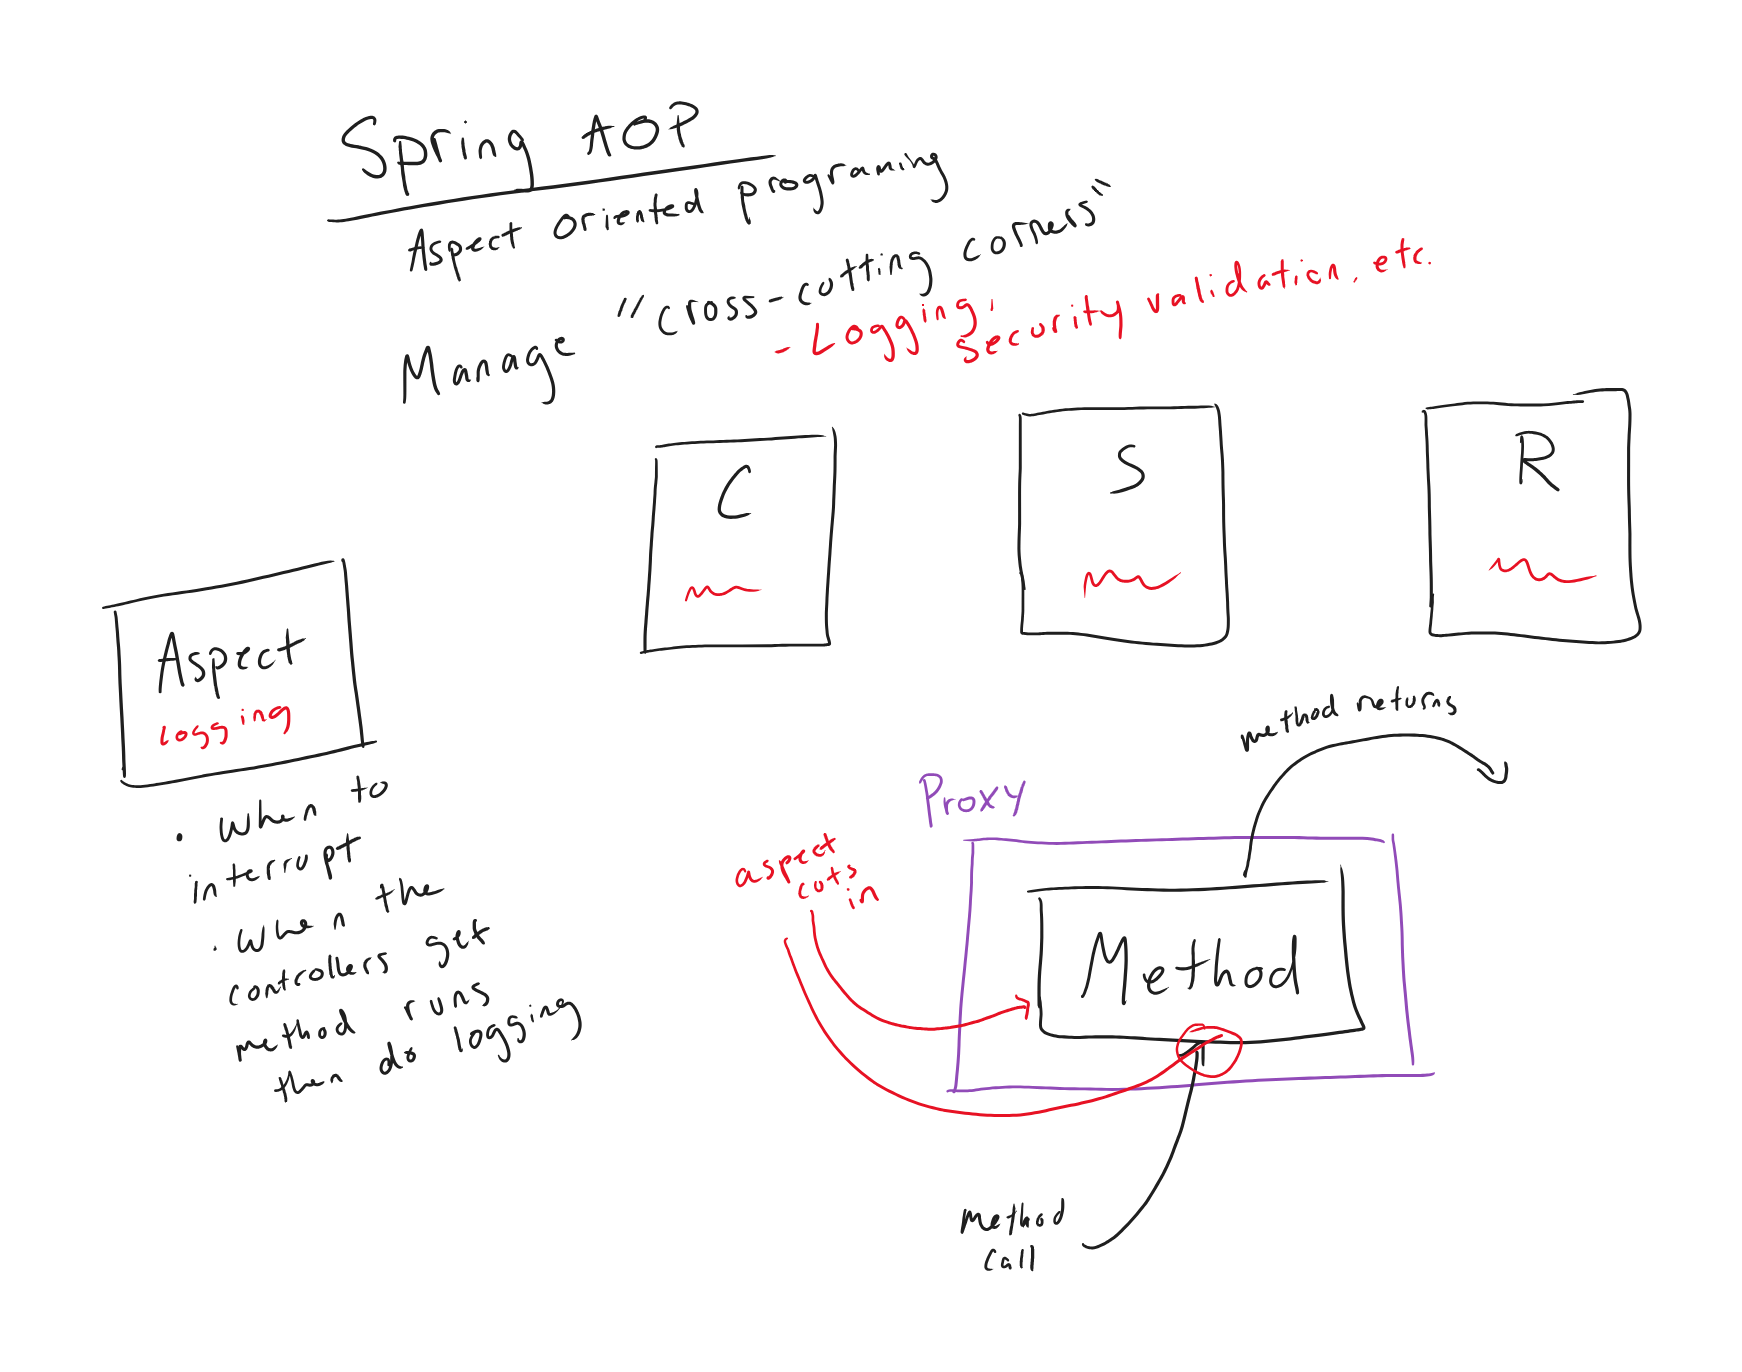 Spring AOP
Aspect oriented programing
Manage "cross-cutting corners"
- Logging,
security validation, etc.
C
S
R
Aspect
logging
• When to
interrupt
• When the
controllers get
method runs
then do logging
Proxy
aspect
cuts
in
Method
method returns
method
call